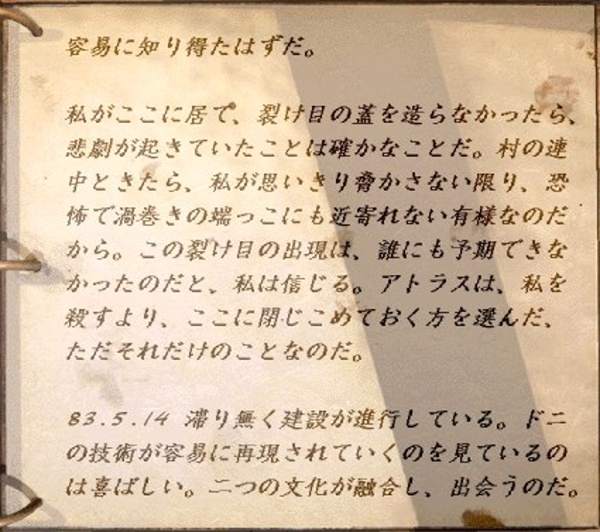 容易に知り得たはずだ。
私がここに居て、裂け目の蓋を造らなかったら、
悲劇が起きていたことは確かなことだ。村の連
中ときたら、私が思いきり脅かさない限り、恐
怖で渦巻きの端っこにも近寄れない有様なのだ
から。この裂け目の出現は、誰にも予期できな
かったのだと、私は信じる。アトラスは、私を
殺すより、ここに閉じこめておく方を選んだ、
ただそれだけのことなのだ。
83.5.14 滞り無く建設が進行している。ドニ
の技術が容易に再現されていくのを見ているの
は喜ばしい。二つの文化が融合し、出会うのだ。